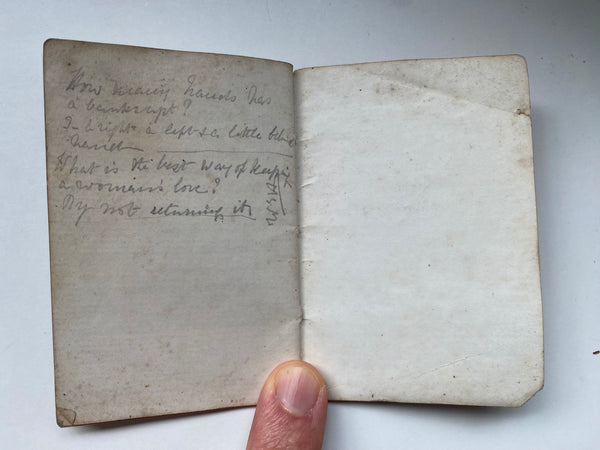 How many hands has
a bankrupt?
3 - a right a left & a little behind
hand
What is the best way of keeping
a woman's love?
By not returning it